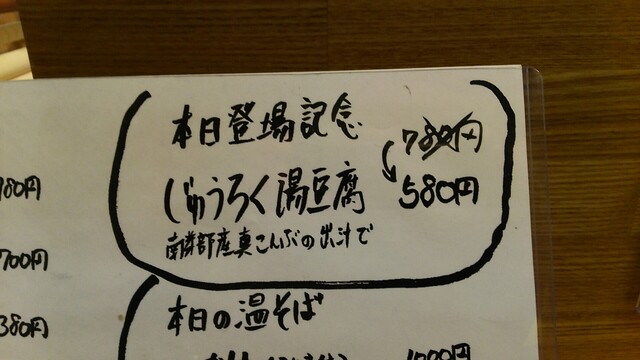 本日登場記念
780円
じゅうろく湯豆腐 580円
南茅部産真こんぶの出汁で
980円
700円
380円
本日の温そば
1000円